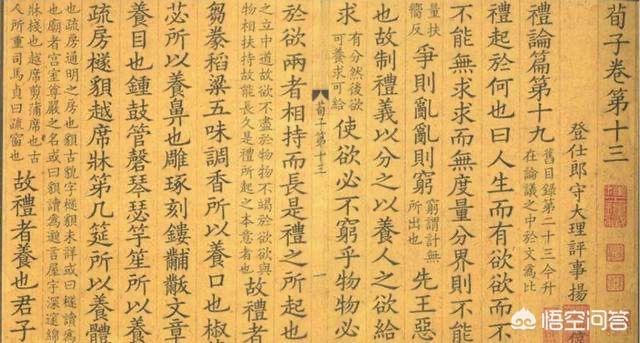 荀子卷第十三
登仕郎守大理評事揚
禮論篇第十九
舊目錄第二十三今升
在論議之中於文爲比
禮起於何也曰人生而有欲欲而不
不能無求求而無度量分界則不能
量扶
嚮反
爭則亂亂則窮
窮謂計無
所出也
先王惡
也故制禮義以分之以養人之欲給
求
有分然後欲
可養求可給
使欲必不窮乎物物必
荀子第十三 一
於欲兩者相持而長是禮之所起也
之立中道故欲不盡於物物不竭於欲欲與
物相扶持故能長久是禮所起之本意者也
故禮者
芻豢稻粱五味調香所以養口也椒
苾所以養鼻也雕琢刻鏤黼黻文章
養目也鍾鼓管磬琴瑟竽笙所以養
疏房檖䫉越席牀笫几筵所以養體
也疏房通明之房也䫉古貌字檖䫉未詳或曰檖讀爲
也廟者宮室尊嚴之名或曰䫉讀爲邈言屋宇深邃緜
牀棧也越席剪蒲席也古
人所重司馬貞曰疏窗也
故禮者養也君子
悟空问答